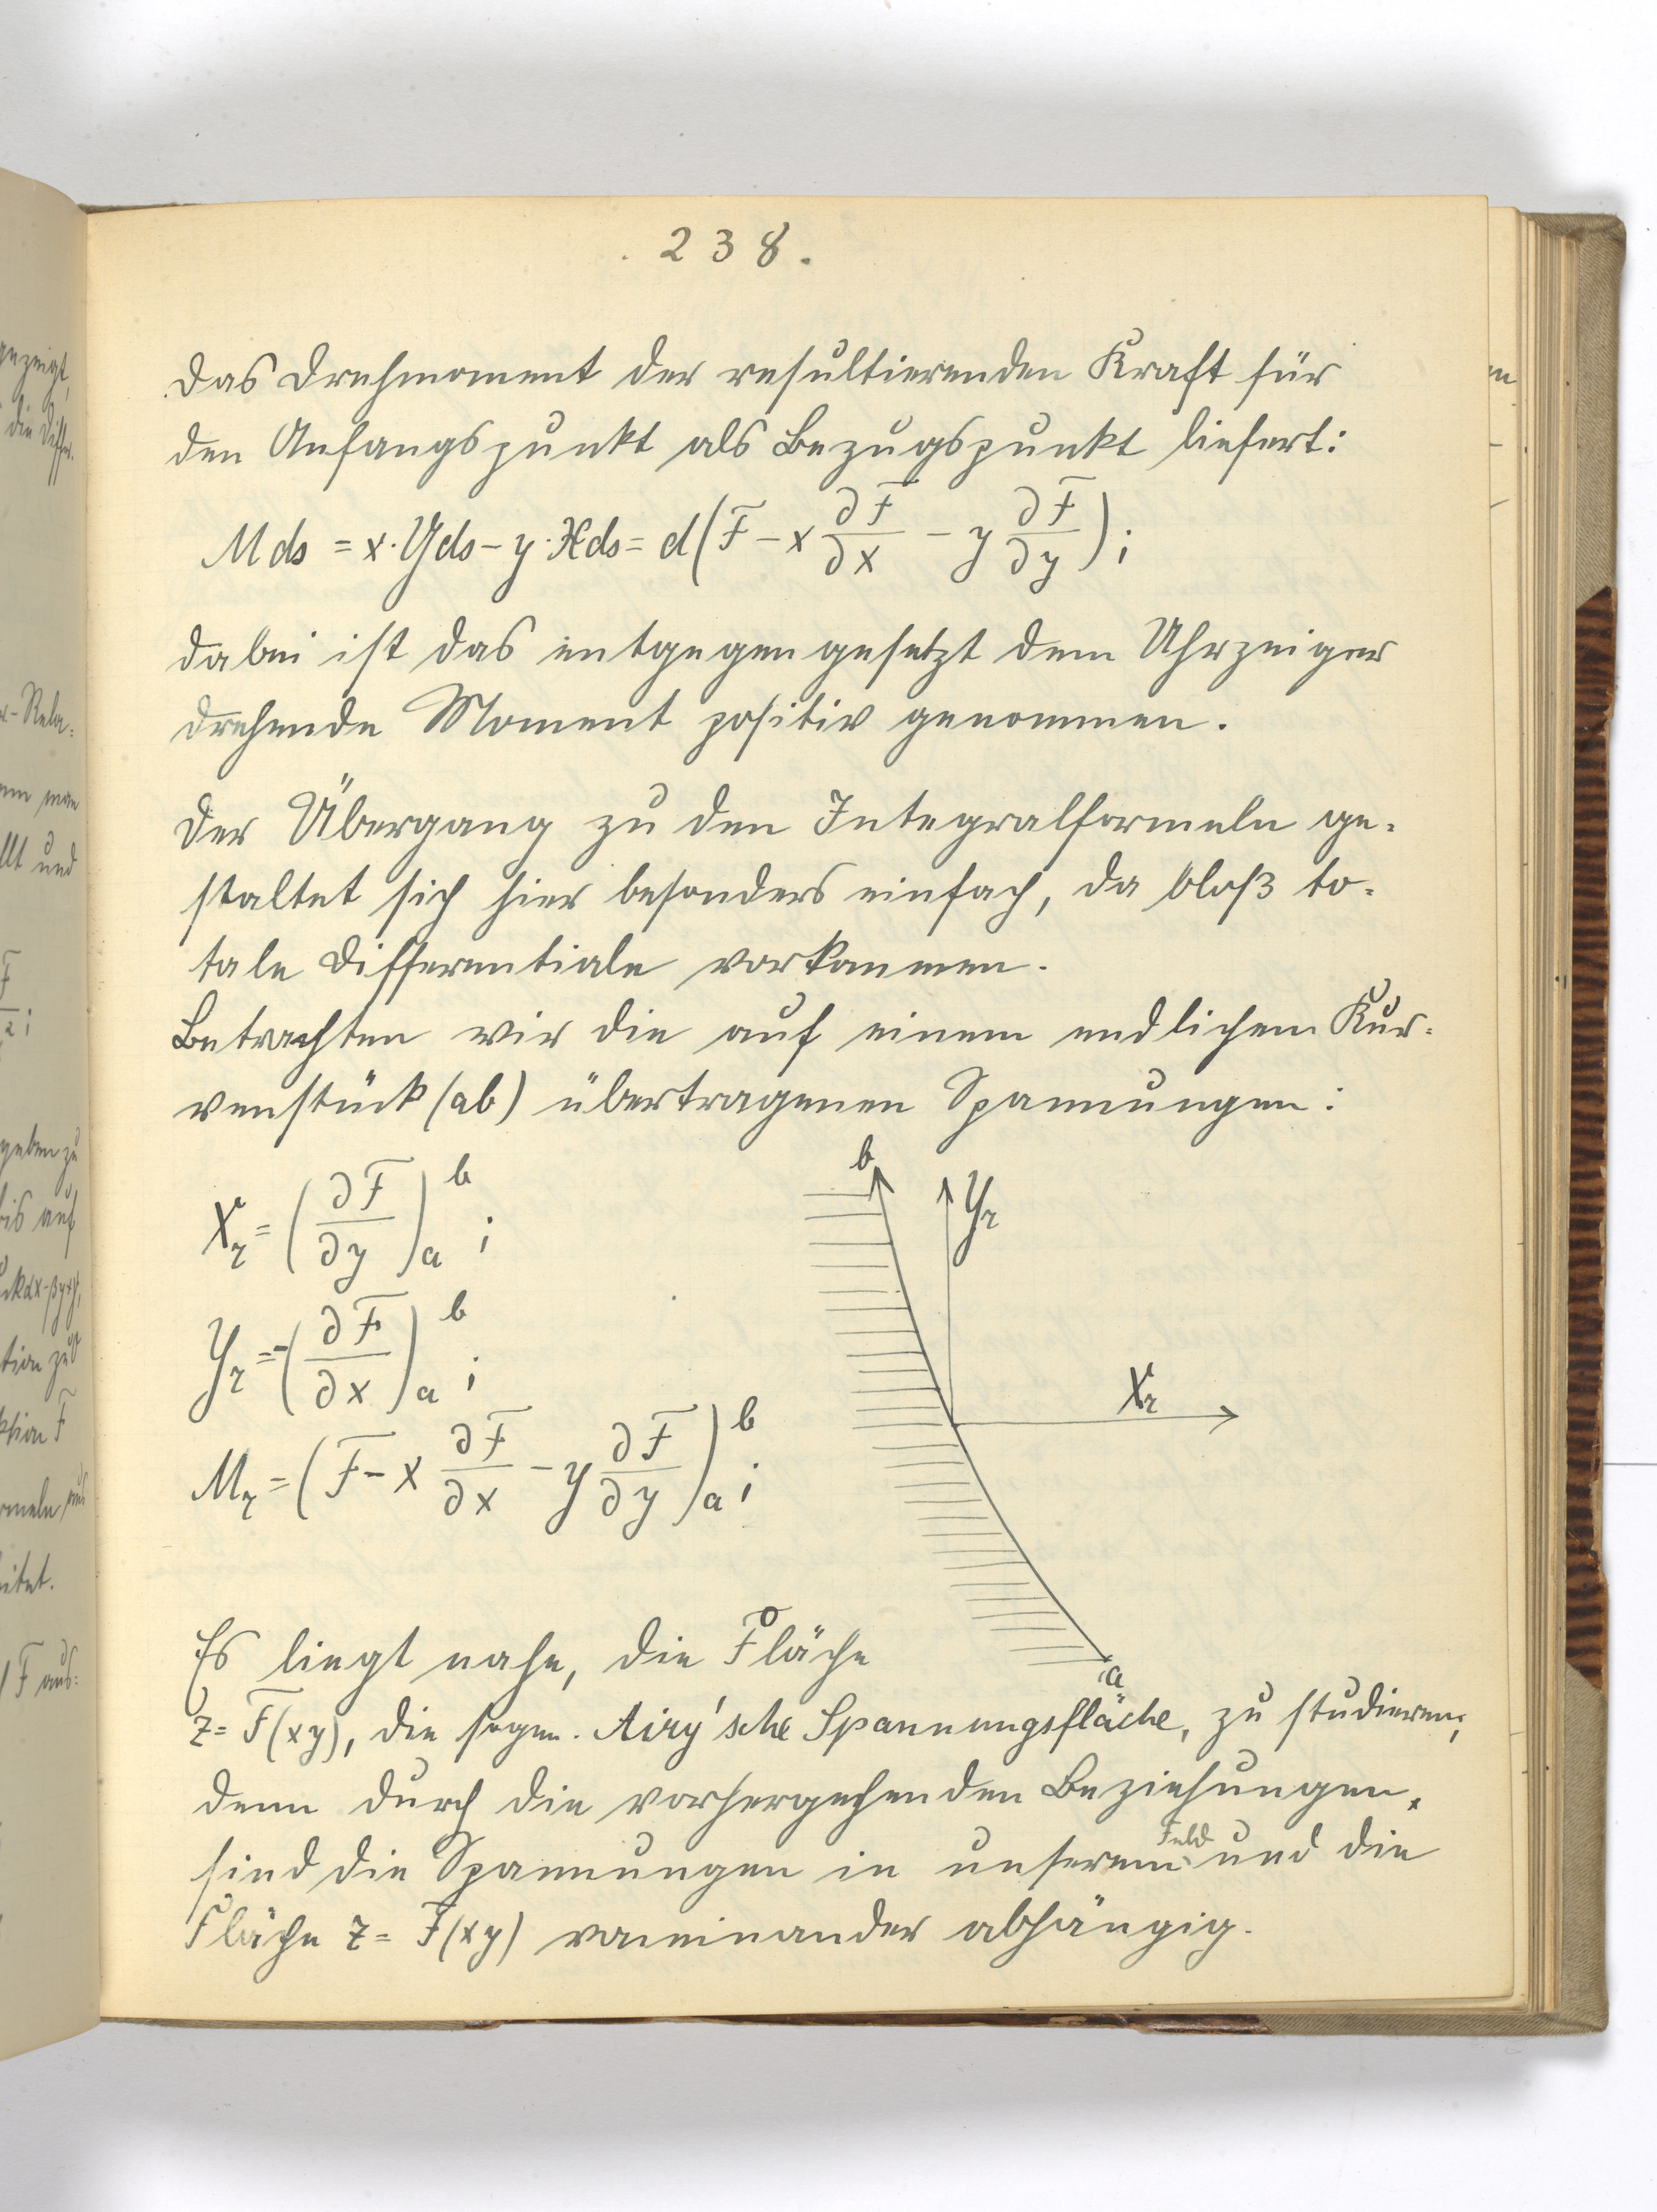 . 238.
Das Drehmoment der resultierenden Kraft für
den Anfangspunkt als Bezugspunkt liefert:
M ds = x · Y ds − y · X ds = d(F − x ∂F/∂x − y ∂F/∂y);
dabei ist das entgegengesetzt dem Uhrzeiger
drehende Moment positiv genommen.
Der Übergang zu den Integralformeln ge-
staltet sich hier besonders einfach, da bloß to-
tale Differentiale vorkommen.
Betrachten wir die auf einem endlichem Kur-
venstück (ab) übertragenen Spannungen:
X_r = (∂F/∂y)_a^b ;
Y_r = −(∂F/∂x)_a^b ;
M_r = (F − x ∂F/∂x − y ∂F/∂y)_a^b ;
b
Y_r
X_r
a
Es liegt nahe, die Fläche
z = F(xy), die sogen. Airy'sche Spannungsfläche, zu studieren,
denn durch die vorhergehenden Beziehungen
sind die Spannungen in unserem Feld und die
Fläche z = F(xy) voneinander abhängig.
gezeigt,
die Differ.
r-Rela-
man
llt und
F
2;
geben zu
bis auf
tion zu
ktion F
rmeln
itet.
F aus-
en